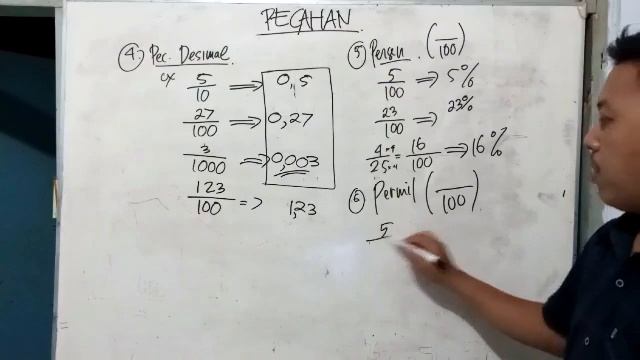 PECAHAN
④ Pec. Desimal
cx 5/10 => 0,5
27/100 => 0,27
3/1000 => 0,003
123/100 => 1,23
⑤ Persen (—/100)
5/100 => 5%
23/100 => 23%
4×4/25×4 = 16/100 => 16%
⑥ Permil (—/100)
5